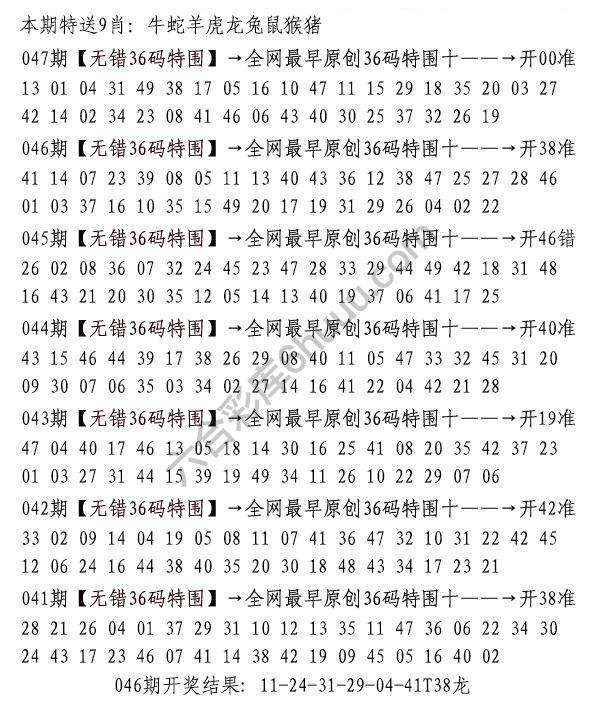 本期特送9肖：牛蛇羊虎龙兔鼠猴猪
047期【无错36码特围】→全网最早原创36码特围十——→开00准
13 01 04 31 49 38 17 05 16 10 47 11 15 29 18 35 20 03 27
42 14 02 34 23 08 41 46 06 43 40 30 25 37 32 26 19
046期【无错36码特围】→全网最早原创36码特围十——→开38准
41 14 07 23 39 08 05 11 13 40 43 36 12 38 47 25 27 28 46
01 03 37 16 10 35 15 49 20 17 19 31 29 26 04 02 22
045期【无错36码特围】→全网最早原创36码特围十——→开46错
26 02 08 36 07 32 24 45 23 47 28 33 29 44 49 42 18 31 48
16 43 21 20 30 35 12 05 14 13 40 19 37 06 41 17 25
044期【无错36码特围】→全网最早原创36码特围十——→开40准
43 15 46 44 39 17 38 26 29 08 40 11 05 47 33 32 45 31 20
09 30 07 06 35 03 34 02 27 14 16 41 22 04 42 21 28
043期【无错36码特围】→全网最早原创36码特围十——→开19准
47 04 40 17 46 13 05 18 14 30 16 25 41 08 20 35 42 37 23
01 03 27 31 44 15 39 19 49 34 11 26 10 22 29 07 06
042期【无错36码特围】→全网最早原创36码特围十——→开42准
33 02 09 14 04 19 05 08 11 07 41 36 47 32 10 31 22 42 45
12 06 24 16 44 38 40 35 20 30 18 48 43 34 17 23 21
041期【无错36码特围】→全网最早原创36码特围十——→开38准
28 21 26 04 01 37 29 31 10 12 13 35 11 47 36 06 22 34 30
24 43 17 23 46 07 41 14 38 42 19 09 45 05 16 40 02
046期开奖结果：11-24-31-29-04-41T38龙
六合彩库ohuuu.com